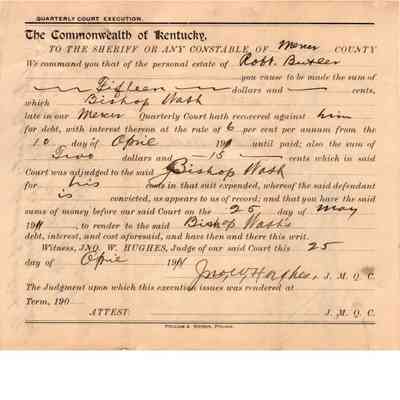 QUARTERLY COURT EXECUTION.
The Commonwealth of Kentucky,
TO THE SHERIFF OR ANY CONSTABLE, OF Mercer COUNTY
We command you that of the personal estate of Robt. Butler
you cause to be made the sum of
Fifteen dollars and cents,
which Bishop Wash
late in our Mercer Quarterly Court hath recovered against him
for debt, with interest thereon at the rate of 6 per cent per annum from the
10 day of April 191 until paid; also the sum of
Two dollars and 15 cents which in said
Court was adjudged to the said Bishop Wash
for his costs in that suit expended, whereof the said defendant
is convicted, as appears to us of record; and that you have the said
sums of money before our said Court on the 25 day of May
1911, to render to the said Bishop Wash's
debt, interest, and cost aforesaid, and have then and there this writ.
Witness, JNO. W. HUGHES, Judge of our said Court this 25
day of April 1911
Jno. W. Hughes, J. M. Q. C.
The Judgment upon which this execution issues was rendered at
Term, 190
ATTEST: J. M. Q. C.